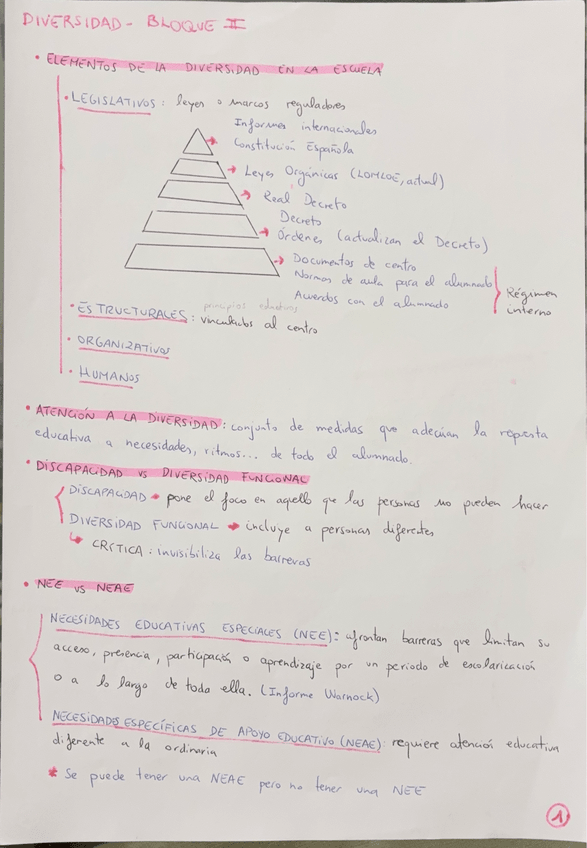 DIVERSIDAD - BLOQUE II
• ELEMENTOS DE LA DIVERSIDAD EN LA ESCUELA
• LEGISLATIVOS: leyes o marcos reguladores
Informes internacionales
Constitución Española
Leyes Orgánicas (LOMLOE, actual)
Real Decreto
Decreto
Órdenes (actualizan el Decreto)
Documentos de centro
Normas de aula para el alumnado
Acuerdos con el alumnado
Régimen
interno
principios educativos
• ESTRUCTURALES: vinculados al centro
• ORGANIZATIVOS
• HUMANOS
• ATENCIÓN A LA DIVERSIDAD: conjunto de medidas que adecúan la respuesta
educativa a necesidades, ritmos... de todo el alumnado.
• DISCAPACIDAD VS DIVERSIDAD FUNCIONAL
DISCAPACIDAD → pone el foco en aquello que las personas no pueden hacer
DIVERSIDAD FUNCIONAL → incluye a personas diferentes
↳ CRÍTICA: invisibiliza las barreras
• NEE VS NEAE
NECESIDADES EDUCATIVAS ESPECIALES (NEE): afrontan barreras que limitan su
acceso, presencia, participación o aprendizaje por un periodo de escolarización
o a lo largo de toda ella. (Informe Warnock)
NECESIDADES ESPECÍFICAS DE APOYO EDUCATIVO (NEAE): requiere atención educativa
diferente a la ordinaria
* Se puede tener una NEAE pero no tener una NEE
1